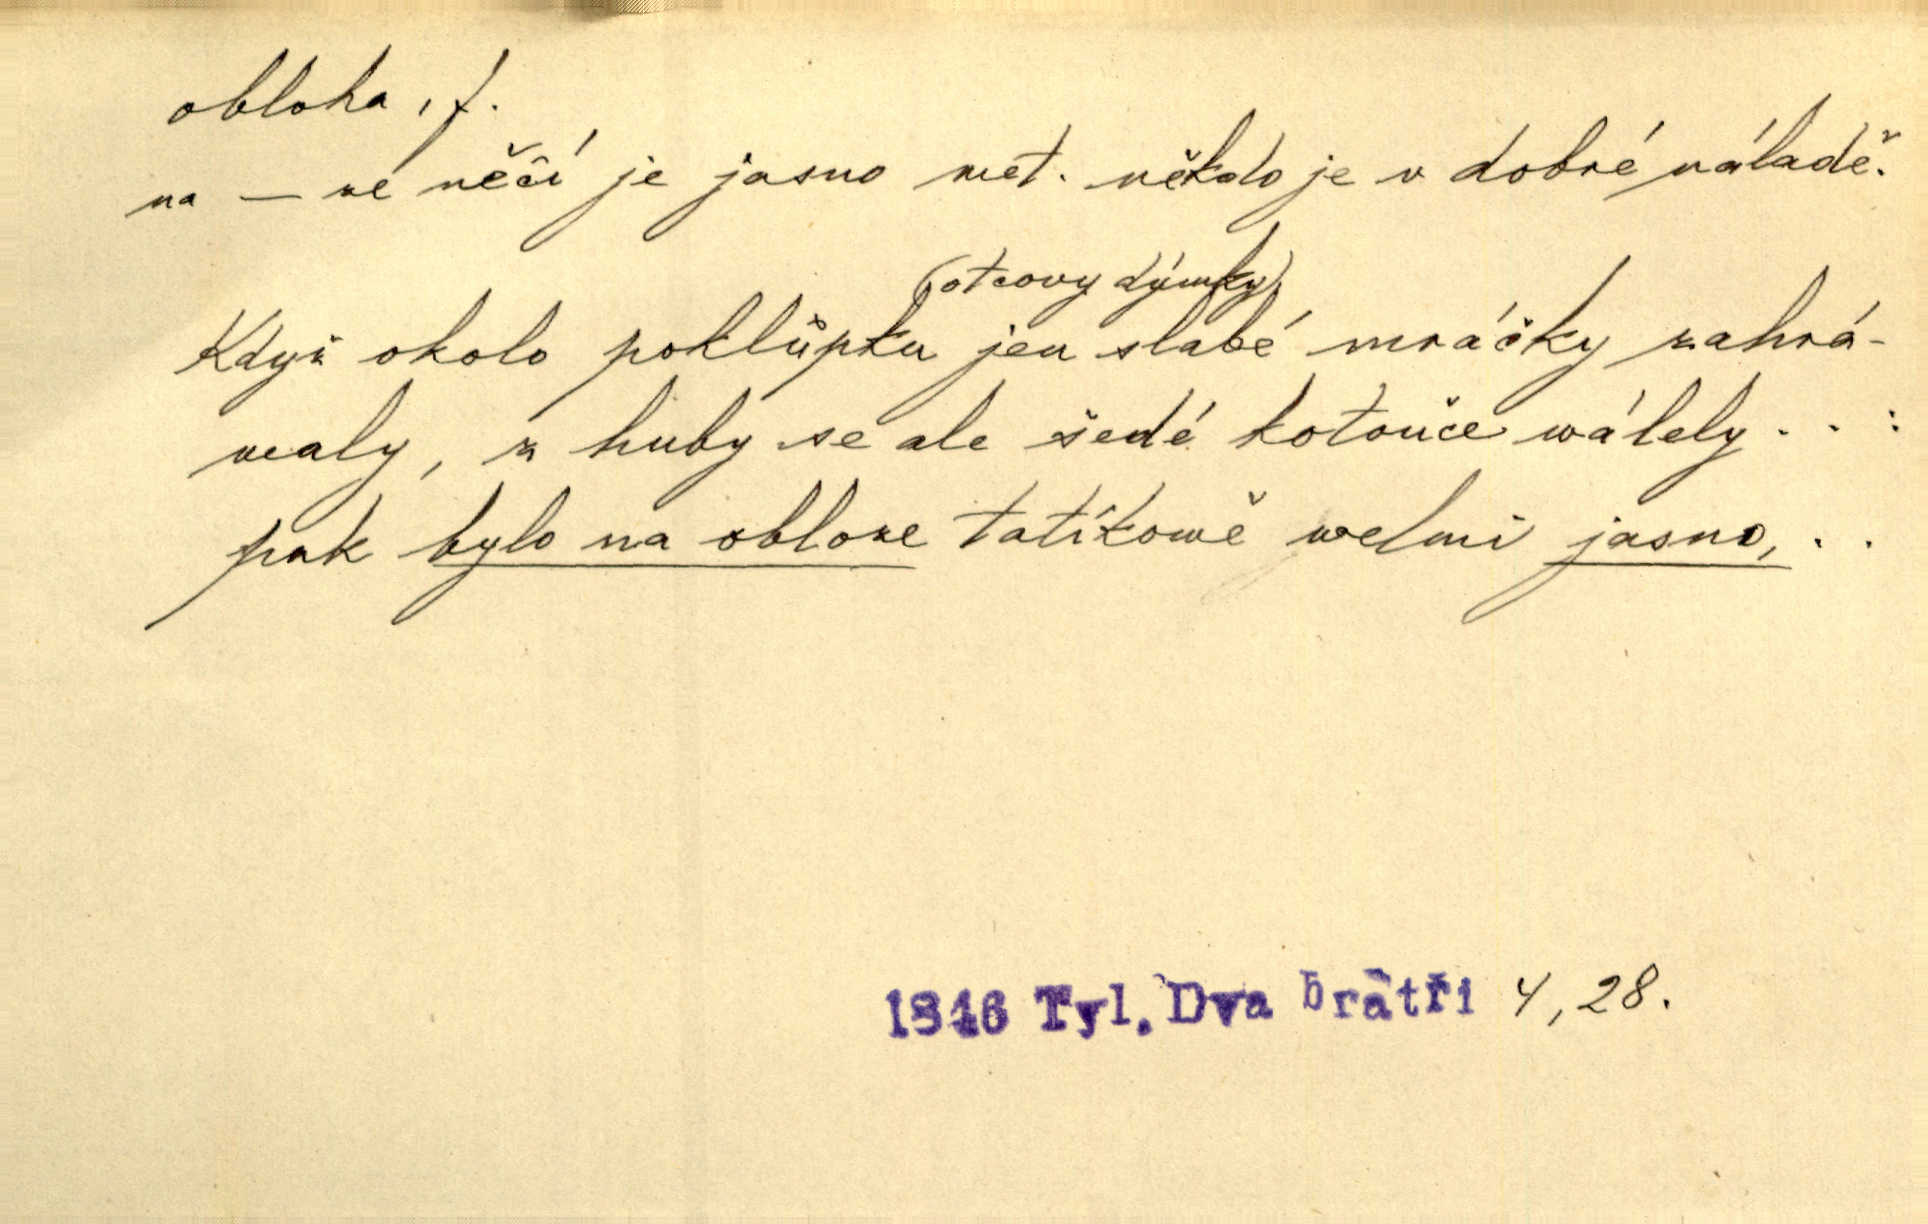 obloha, f.
na — ze něčí je jasno met. někdo je v dobré náladě.
(otcovy dýmky)
Když okolo poklůpku jen slabé mráčky zahrá-
waly, z huby se ale šedé kotouče wálely . . :
pak bylo na obloze tatíkowě welmi jasno, . .
1846 Tyl. Dva bratři 4, 28.